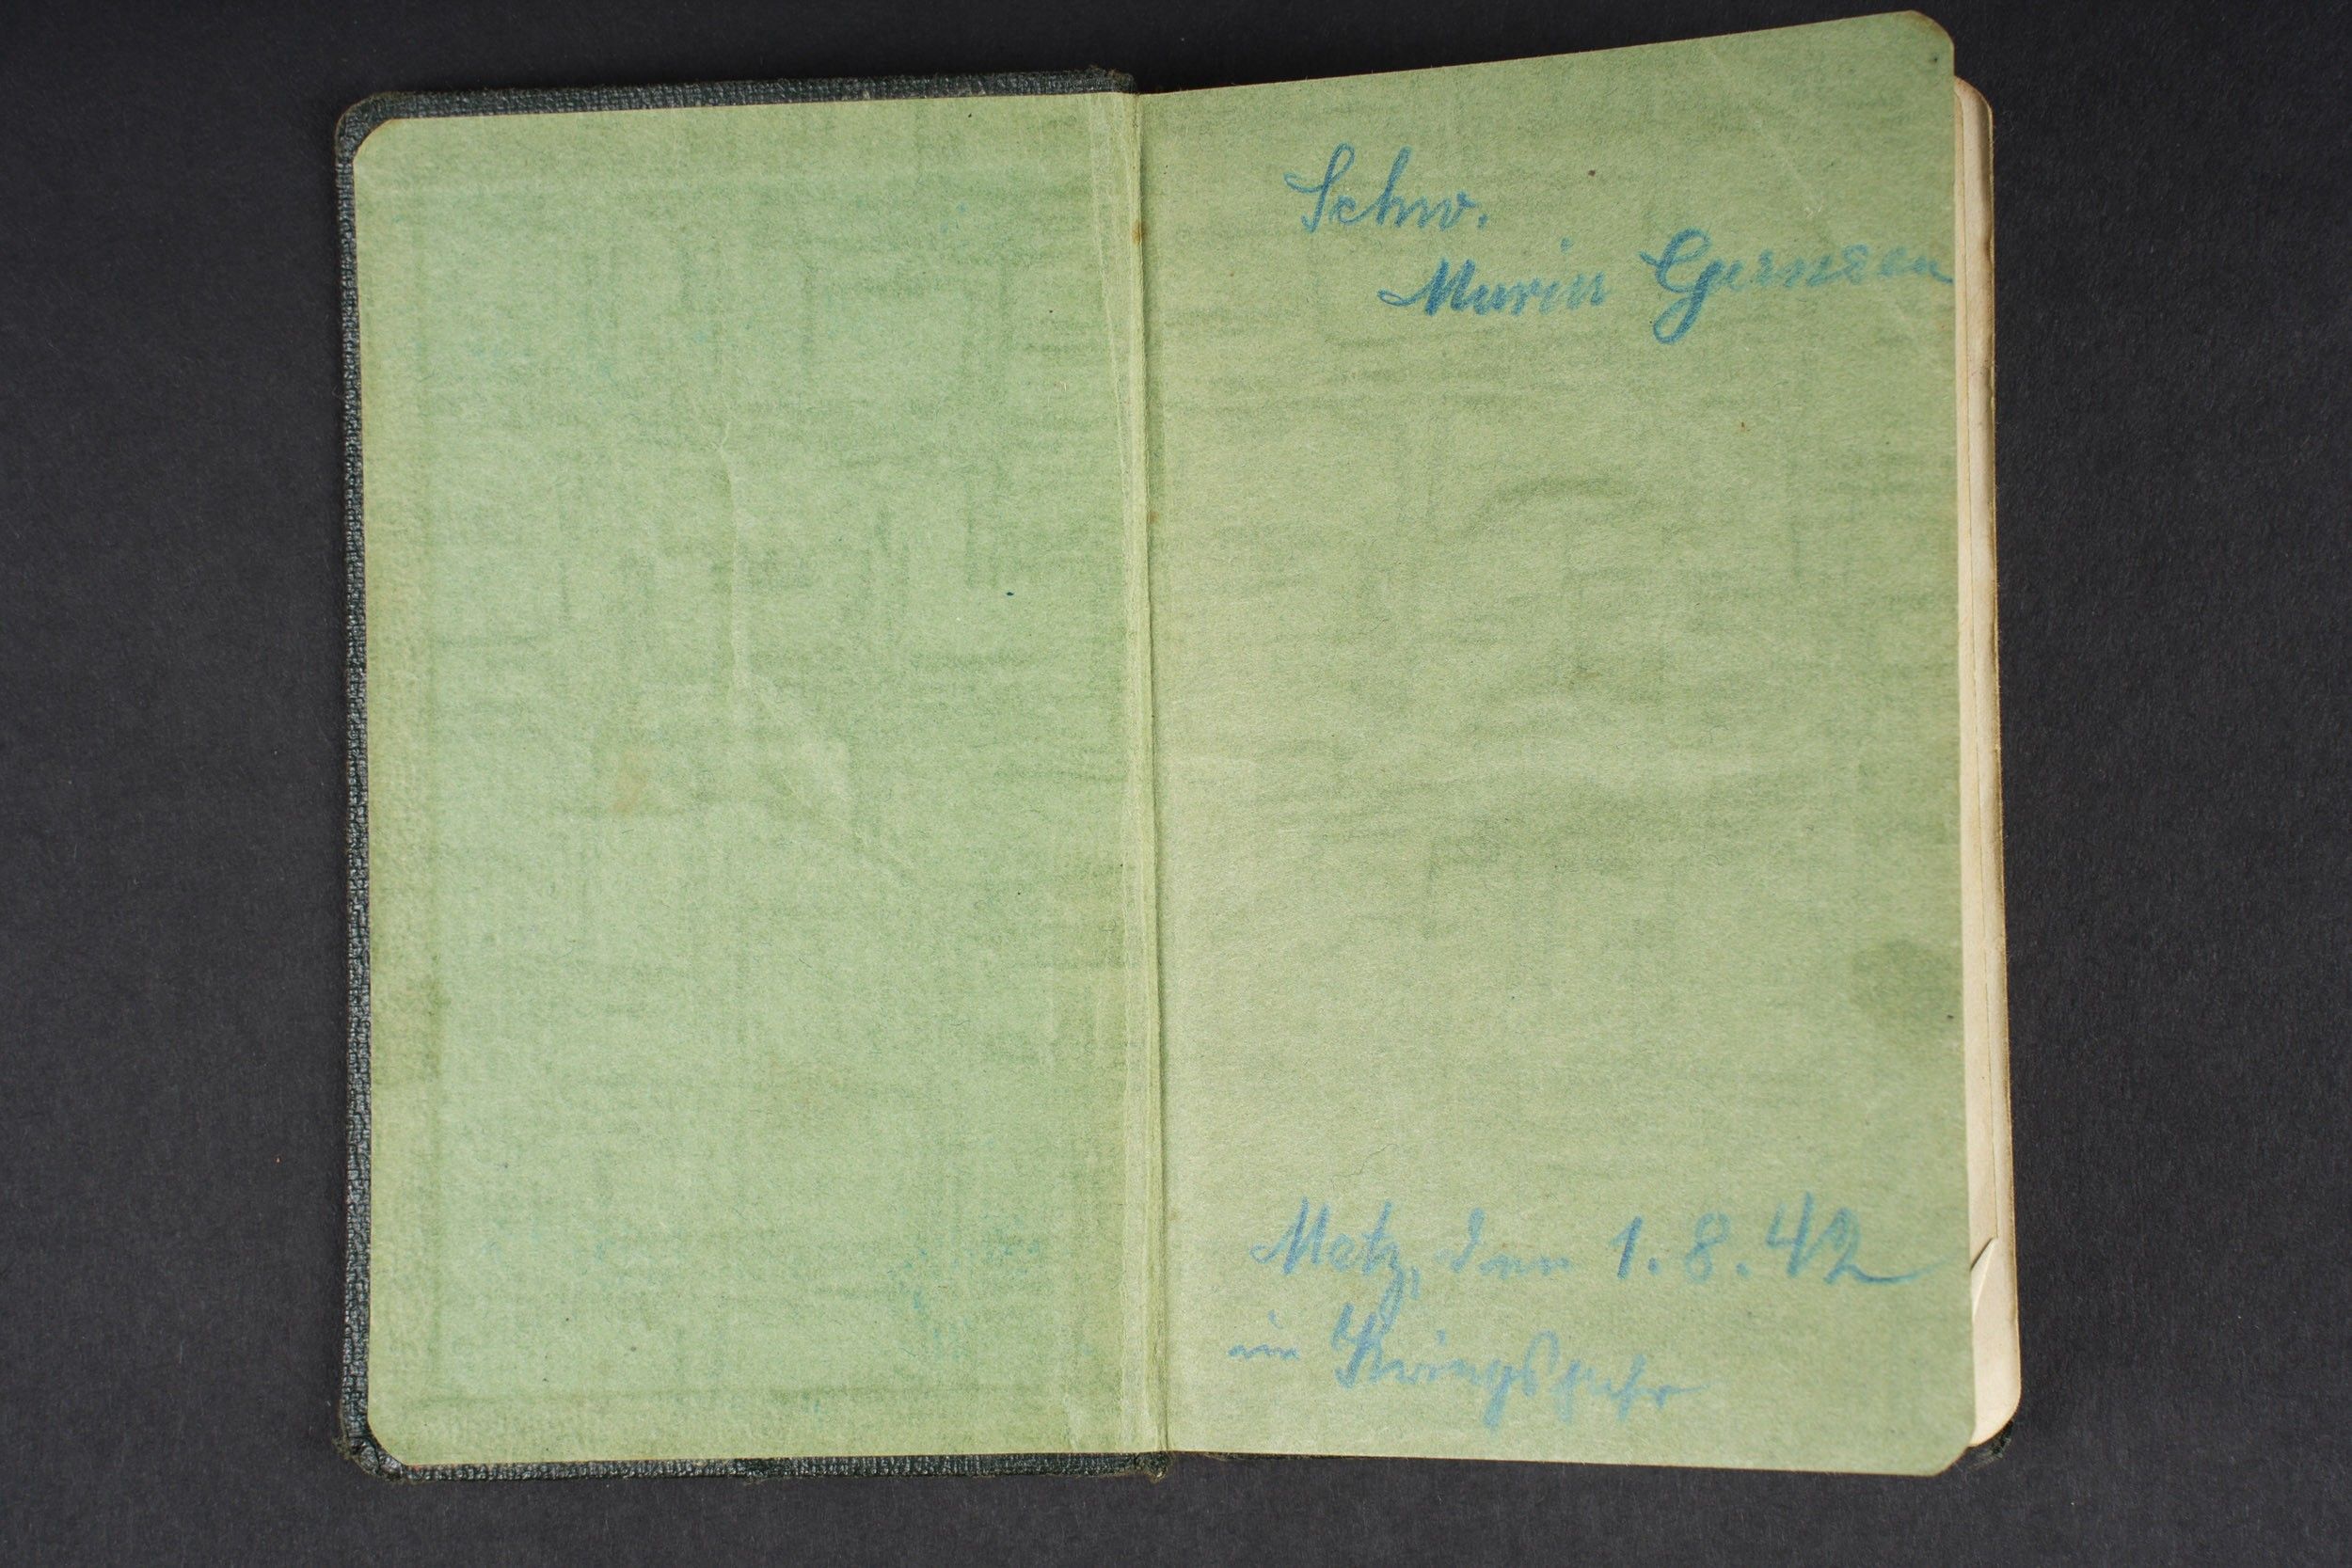 Schw.
Maria
Metz, den 1.8.42
im Kriegsjahr